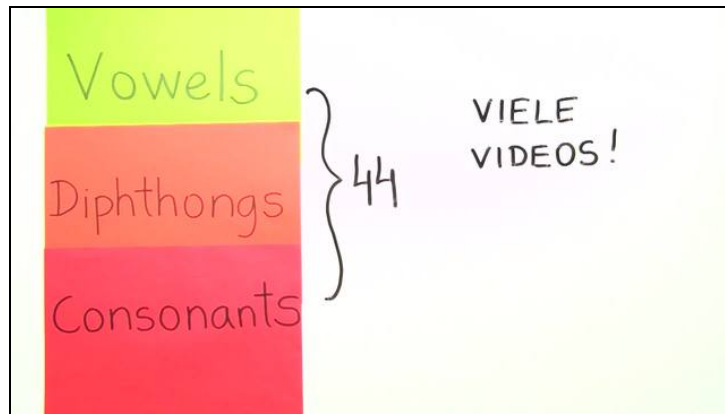 Vowels
Diphthongs
Consonants
44
VIELE
VIDEOS!